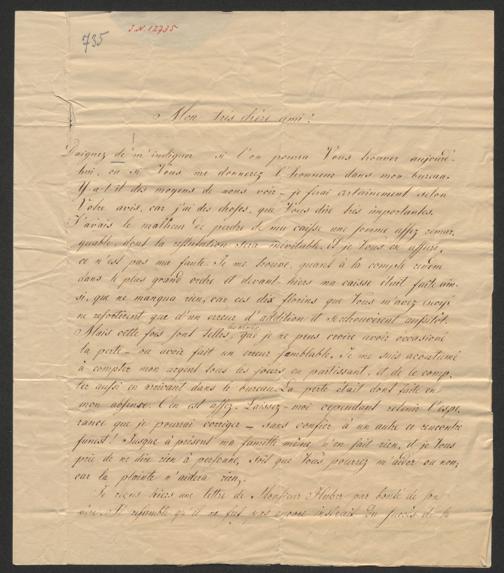 735
I.N. 12735
Mon très chère ami!
Daignez de m'indiquer si l'on pourra Vous trouver aujourd-
hui, ou si Vous me donnerez l'honneur dans mon bureau.
Y-a-t-il des moyens de nous voir – je ferai certainement selon
Votre avis, car j'ai des choses, que Vous dire très importantes.
J'avais le malheur de perdre de ma caisse une somme assez remar-
quable, dont la restitution sera inévitable, et je Vous en assure,
ce n'est pas ma faute. Je me trouve, quant à la compte rendu
dans le plus grand ordre et devant hiers ma caisse était faite ain-
si, que ne manqua rien, car ces dix florins que Vous m'avez
ne resortirent que d'un erreur d'addition et se trouvèrent aussitôt.
Mais cette fois sont telles, que je ne peux croire avoir occasioné
la perte – ou avoir fait un erreur semblable. Je me suis acoutumé
à compter mon argent tous les jours en partissant, et de le comp-
ter aussi en arrivant dans le bureau. La perte était dont faite en
mon absence. C'en est assez. Laissez-moi cependant retenir l'espé-
rance que je pourai corriger – sans confier à un autre ce rencontre
funest! Jusque à présent ma famille même n'en sait rien, et je Vous
prie de ne dire rien à personne, soit que Vous pourrez m'aider ou non,
car la plainte n'aidera rien.
Je reçus hiers une lettre de Monsieur Huber par bonté de son
. Il resemble qu'il ne fut pas encore du succès de la